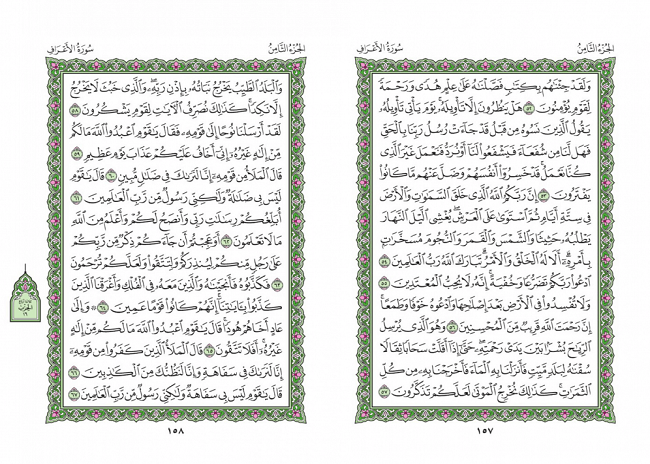 سُورَةُ الأَعۡرَافِ
الجُزۡءُ الثَّامِنُ
وَلَقَدۡ جِئۡنَٰهُم بِكِتَٰبٖ فَصَّلۡنَٰهُ عَلَىٰ عِلۡمٍ هُدٗى وَرَحۡمَةٗ
لِّقَوۡمٖ يُؤۡمِنُونَ ٥٢ هَلۡ يَنظُرُونَ إِلَّا تَأۡوِيلَهُۥۚ يَوۡمَ يَأۡتِي تَأۡوِيلُهُۥ
يَقُولُ ٱلَّذِينَ نَسُوهُ مِن قَبۡلُ قَدۡ جَآءَتۡ رُسُلُ رَبِّنَا بِٱلۡحَقِّ
فَهَل لَّنَا مِن شُفَعَآءَ فَيَشۡفَعُواْ لَنَآ أَوۡ نُرَدُّ فَنَعۡمَلَ غَيۡرَ ٱلَّذِي
كُنَّا نَعۡمَلُۚ قَدۡ خَسِرُوٓاْ أَنفُسَهُمۡ وَضَلَّ عَنۡهُم مَّا كَانُواْ
يَفۡتَرُونَ ٥٣ إِنَّ رَبَّكُمُ ٱللَّهُ ٱلَّذِي خَلَقَ ٱلسَّمَٰوَٰتِ وَٱلۡأَرۡضَ
فِي سِتَّةِ أَيَّامٖ ثُمَّ ٱسۡتَوَىٰ عَلَى ٱلۡعَرۡشِۖ يُغۡشِي ٱلَّيۡلَ ٱلنَّهَارَ
يَطۡلُبُهُۥ حَثِيثٗا وَٱلشَّمۡسَ وَٱلۡقَمَرَ وَٱلنُّجُومَ مُسَخَّرَٰتِۭ
بِأَمۡرِهِۦٓۗ أَلَا لَهُ ٱلۡخَلۡقُ وَٱلۡأَمۡرُۗ تَبَارَكَ ٱللَّهُ رَبُّ ٱلۡعَٰلَمِينَ ٥٤
ٱدۡعُواْ رَبَّكُمۡ تَضَرُّعٗا وَخُفۡيَةًۚ إِنَّهُۥ لَا يُحِبُّ ٱلۡمُعۡتَدِينَ ٥٥
وَلَا تُفۡسِدُواْ فِي ٱلۡأَرۡضِ بَعۡدَ إِصۡلَٰحِهَا وَٱدۡعُوهُ خَوۡفٗا وَطَمَعًاۚ
إِنَّ رَحۡمَتَ ٱللَّهِ قَرِيبٞ مِّنَ ٱلۡمُحۡسِنِينَ ٥٦ وَهُوَ ٱلَّذِي يُرۡسِلُ
ٱلرِّيَٰحَ بُشۡرَۢا بَيۡنَ يَدَيۡ رَحۡمَتِهِۦۖ حَتَّىٰٓ إِذَآ أَقَلَّتۡ سَحَابٗا ثِقَالٗا
سُقۡنَٰهُ لِبَلَدٖ مَّيِّتٖ فَأَنزَلۡنَا بِهِ ٱلۡمَآءَ فَأَخۡرَجۡنَا بِهِۦ مِن كُلِّ
ٱلثَّمَرَٰتِۚ كَذَٰلِكَ نُخۡرِجُ ٱلۡمَوۡتَىٰ لَعَلَّكُمۡ تَذَكَّرُونَ ٥٧
١٥٧
سُورَةُ الأَعۡرَافِ
الجُزۡءُ الثَّامِنُ
وَٱلۡبَلَدُ ٱلطَّيِّبُ يَخۡرُجُ نَبَاتُهُۥ بِإِذۡنِ رَبِّهِۦۖ وَٱلَّذِي خَبُثَ لَا يَخۡرُجُ
إِلَّا نَكِدٗاۚ كَذَٰلِكَ نُصَرِّفُ ٱلۡأٓيَٰتِ لِقَوۡمٖ يَشۡكُرُونَ ٥٨
لَقَدۡ أَرۡسَلۡنَا نُوحًا إِلَىٰ قَوۡمِهِۦ فَقَالَ يَٰقَوۡمِ ٱعۡبُدُواْ ٱللَّهَ مَا لَكُم
مِّنۡ إِلَٰهٍ غَيۡرُهُۥٓ إِنِّيٓ أَخَافُ عَلَيۡكُمۡ عَذَابَ يَوۡمٍ عَظِيمٖ ٥٩
قَالَ ٱلۡمَلَأُ مِن قَوۡمِهِۦٓ إِنَّا لَنَرَىٰكَ فِي ضَلَٰلٖ مُّبِينٖ ٦٠ قَالَ يَٰقَوۡمِ
لَيۡسَ بِي ضَلَٰلَةٞ وَلَٰكِنِّي رَسُولٞ مِّن رَّبِّ ٱلۡعَٰلَمِينَ ٦١
أُبَلِّغُكُمۡ رِسَٰلَٰتِ رَبِّي وَأَنصَحُ لَكُمۡ وَأَعۡلَمُ مِنَ ٱللَّهِ
مَا لَا تَعۡلَمُونَ ٦٢ أَوَعَجِبۡتُمۡ أَن جَآءَكُمۡ ذِكۡرٞ مِّن رَّبِّكُمۡ
عَلَىٰ رَجُلٖ مِّنكُمۡ لِيُنذِرَكُمۡ وَلِتَتَّقُواْ وَلَعَلَّكُمۡ تُرۡحَمُونَ
٦٣ فَكَذَّبُوهُ فَأَنجَيۡنَٰهُ وَٱلَّذِينَ مَعَهُۥ فِي ٱلۡفُلۡكِ وَأَغۡرَقۡنَا ٱلَّذِينَ
كَذَّبُواْ بِـَٔايَٰتِنَآۚ إِنَّهُمۡ كَانُواْ قَوۡمًا عَمِينَ ٦٤ ۞ وَإِلَىٰ
عَادٍ أَخَاهُمۡ هُودٗاۚ قَالَ يَٰقَوۡمِ ٱعۡبُدُواْ ٱللَّهَ مَا لَكُم مِّنۡ إِلَٰهٍ
غَيۡرُهُۥٓۚ أَفَلَا تَتَّقُونَ ٦٥ قَالَ ٱلۡمَلَأُ ٱلَّذِينَ كَفَرُواْ مِن قَوۡمِهِۦٓ
إِنَّا لَنَرَىٰكَ فِي سَفَاهَةٖ وَإِنَّا لَنَظُنُّكَ مِنَ ٱلۡكَٰذِبِينَ ٦٦
قَالَ يَٰقَوۡمِ لَيۡسَ بِي سَفَاهَةٞ وَلَٰكِنِّي رَسُولٞ مِّن رَّبِّ ٱلۡعَٰلَمِينَ ٦٧
الحزب
١٦
١٥٨